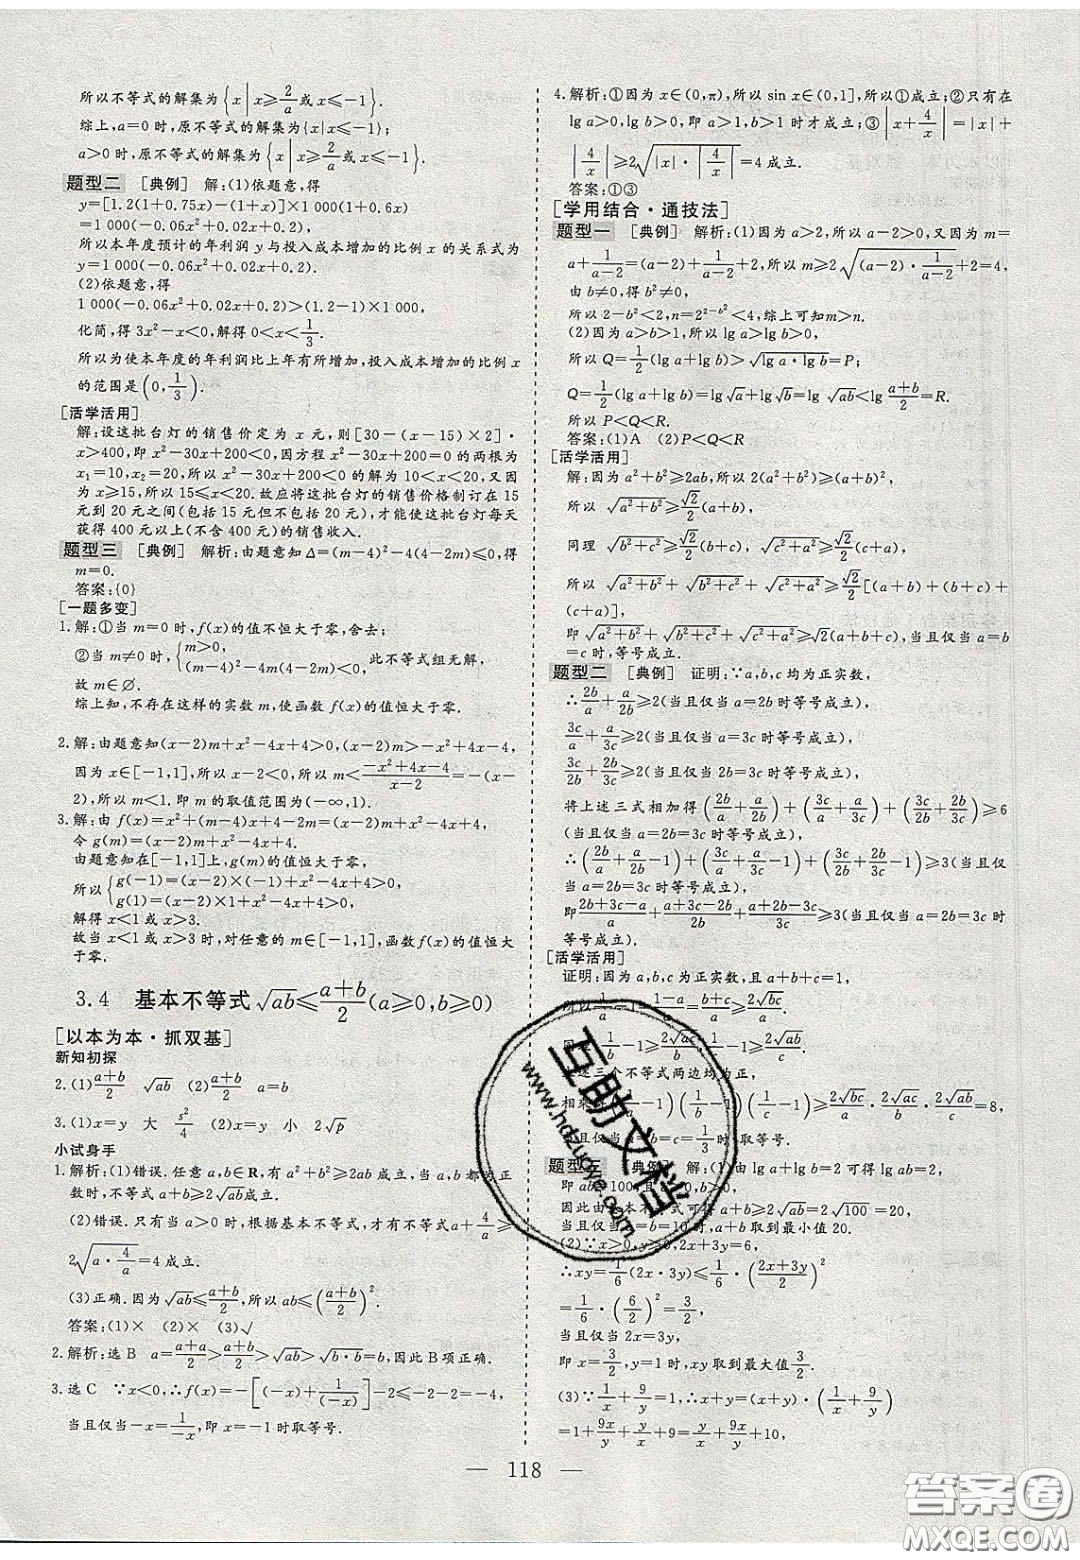 所以不等式的解集为{x|x≥2/a或x≤-1}.
综上,a=0时,原不等式的解集为{x|x≤-1};
a>0时,原不等式的解集为{x|x≥2/a或x≤-1}.
题型二 [典例] 解:(1)依题意,得
y=[1.2(1+0.75x)-(1+x)]×1 000(1+0.6x)
=1 000(-0.06x²+0.02x+0.2)
所以本年度预计的年利润y与投入成本增加的比例x的关系式为
y=1 000(-0.06x²+0.02x+0.2)
(2)依题意,得
1 000(-0.06x²+0.02x+0.2)>(1.2-1)×1 000.
化简,得3x²-x<0,解得0<x<1/3.
所以为使本年度的年利润比上年有所增加,投入成本增加的比例x
的范围是(0,1/3).
[活学活用]
解:设这批台灯的销售价定为x元,则[30-(x-15)×2]·
x>400,即x²-30x+200<0,因方程x²-30x+200=0的两根为
x₁=10,x₂=20,所以x²-30x+200<0的解为10<x<20,又因
为x≥15,所以15≤x<20.故应将这批台灯的销售价格制订在15
元到20元之间(包括15元但不包括20元),才能使这批台灯每天
获得400元以上(不含400元)的销售收入.
题型三 [典例] 解析:由题意知Δ=(m-4)²-4(4-2m)≤0,得
m=0.
答案:{0}
[一题多变]
1.解:①当m=0时,f(x)的值不恒大于零,舍去;
②当m≠0时,{m>0, (m-4)²-4m(4-2m)<0, 此不等式组无解,
故m∈∅.
综上知,不存在这样的实数m,使函数f(x)的值恒大于零.
2.解:由题意知(x-2)m+x²-4x+4>0,(x-2)m>-x²+4x-4,
因为x∈[-1,1],所以x-2<0,所以m<(-x²+4x-4)/(x-2)=-(x-
2),所以m<1.即m的取值范围为(-∞,1).
3.解:由f(x)=x²+(m-4)x+4-2m=(x-2)m+x²-4x+4,
令g(m)=(x-2)m+x²-4x+4.
由题意知在[-1,1]上,g(m)的值恒大于零,
所以{g(-1)=(x-2)×(-1)+x²-4x+4>0, g(1)=(x-2)×1+x²-4x+4>0,
解得x<1或x>3.
故当x<1或x>3时,对任意的m∈[-1,1],函数f(x)的值恒大
于零.
3.4 基本不等式√ab≤(a+b)/2(a≥0,b≥0)
[以本为本·抓双基]
新知初探
2.(1)(a+b)/2 √ab (2)(a+b)/2 a=b
3.(1)x=y 大 s²/4 (2)x=y 小 2√p
小试身手
1.解析:(1)错误.任意a,b∈R,有a²+b²≥2ab成立,当a,b都为正
数时,不等式a+b≥2√ab成立.
(2)错误.只有当a>0时,根据基本不等式,才有不等式a+4/a≥
2√(a·4/a)=4成立.
(3)正确.因为√ab≤(a+b)/2,所以ab≤((a+b)/2)².
答案:(1)× (2)× (3)√
2.解析:选B a=(a+a)/2>(a+b)/2>√ab>√(b·b)=b,因此B项正确.
3.选C ∵x<0,∴f(x)=-[(-x)+1/(-x)]-2≤-2-2=-4,
当且仅当-x=1/(-x),即x=-1时取等号.
4.解析:①因为x∈(0,π),所以sin x∈(0,1],所以①成立;②只有在
lg a>0,lg b>0,即a>1,b>1时才成立;③|x+4/x|=|x|+
|4/x|≥2√(|x|·|4/x|)=4成立.
答案:①③
[学用结合·通技法]
题型一 [典例] 解析:(1)因为a>2,所以a-2>0,又因为m=
a+1/(a-2)=(a-2)+1/(a-2)+2,所以m≥2√((a-2)·1/(a-2))+2=4,
由b≠0,得b²≠0,
所以2-b²<2,n=2^(2-b²)<4,综上可知m>n.
(2)因为a>b>1,所以lg a>lg b>0,
所以Q=1/2(lg a+lg b)>√(lg a·lg b)=P;
Q=1/2(lg a+lg b)=lg√a+lg√b=lg√ab<lg (a+b)/2=R.
所以P<Q<R.
答案:(1)A (2)P<Q<R
[活学活用]
解:因为a²+b²≥2ab,所以2(a²+b²)≥(a+b)²,
所以√(a²+b²)≥√2/2(a+b),
同理√(b²+c²)≥√2/2(b+c),√(c²+a²)≥√2/2(c+a),
所以√(a²+b²)+√(b²+c²)+√(c²+a²)≥√2/2[(a+b)+(b+c)+
(c+a)],
即√(a²+b²)+√(b²+c²)+√(c²+a²)≥√2(a+b+c),当且仅当a=b
=c时,等号成立.
题型二 [典例] 证明:∵a,b,c均为正实数,
∴2b/a+a/2b≥2(当且仅当a=2b时等号成立),
3c/a+a/3c≥2(当且仅当a=3c时等号成立),
3c/2b+2b/3c≥2(当且仅当2b=3c时等号成立),
将上述三式相加得(2b/a+a/2b)+(3c/a+a/3c)+(3c/2b+2b/3c)≥6
(当且仅当a=2b=3c时等号成立),
∴(2b/a+a/2b-1)+(3c/a+a/3c-1)+(3c/2b+2b/3c-1)≥3(当且仅
当a=2b=3c时等号成立),
即(2b+3c-a)/a+(a+3c-2b)/2b+(a+2b-3c)/3c≥3(当且仅当a=2b=3c时
等号成立).
[活学活用]
证明:因为a,b,c为正实数,且a+b+c=1,
所以1/a-1=(1-a)/a=(b+c)/a≥2√bc/a.
同理1/b-1≥2√ac/b,1/c-1≥2√ab/c.
上述三个不等式两边均为正,
相乘得(1/a-1)(1/b-1)(1/c-1)≥2√bc/a·2√ac/b·2√ab/c=8,
当且仅当a=b=c=1/3时,取等号.
题型三 [典例] 解:(1)由lg a+lg b=2可得lg ab=2,
即ab=100,且a>0,b>0,
因此由基本不等式可得a+b≥2√ab=2√100=20,
当且仅当a=b=10时,a+b取到最小值20.
(2)∵x>0,y>0,2x+3y=6,
∴xy=1/6(2x·3y)≤1/6·((2x+3y)/2)²
=1/6·(6/2)²=3/2,
当且仅当2x=3y,
即x=3/2,y=1时,xy取到最大值3/2.
(3)∵1/x+9/y=1,∴x+y=(x+y)·(1/x+9/y)
=1+9x/y+y/x+9=y/x+9x/y+10,
— 118 —
互助文档
www.hdzuoye.com
答案圈
MXQE.COM